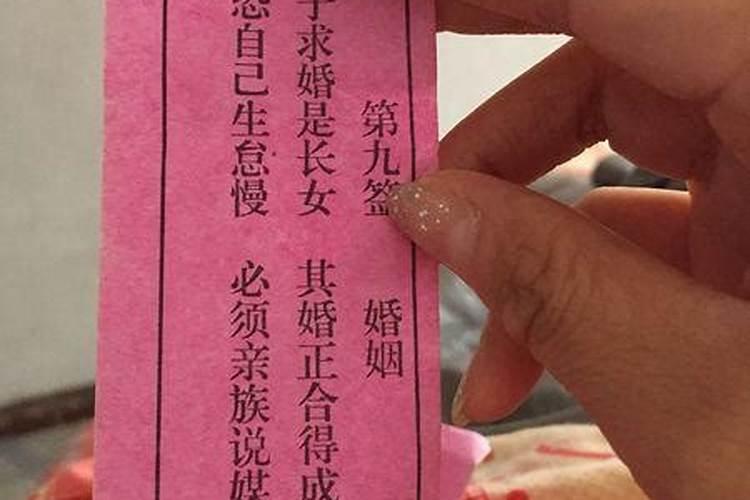 第九签 婚姻
求婚是长女 其婚正合得成
自己生怠慢 必须亲族说媒